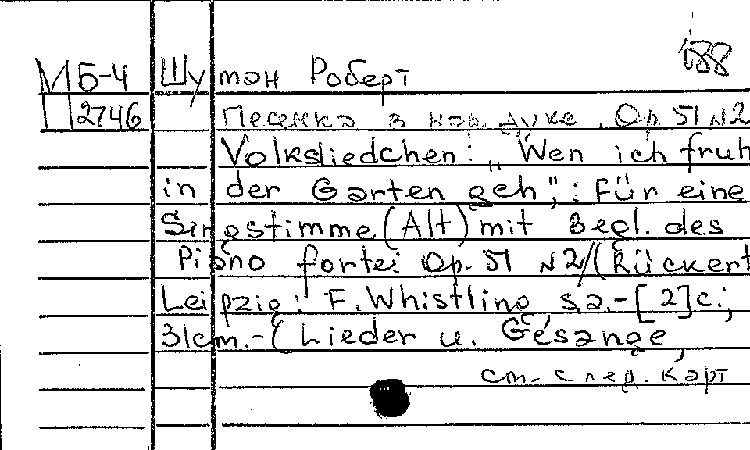 188
МБ-4 Шуман Роберт
П 2746 Песенка в нар. духе. Op. 51 N2
Volksliedchen: „Wen ich fruh
in der Garten geh“,: Für eine
Singstimme (Alt) mit Begl. des
Piano forte: Op. 51 N2/(Rückert
Leipzig: F. Whistling, s.a.-[2]c.;
31cm.-(Lieder u. Gesange,
см. след. карт